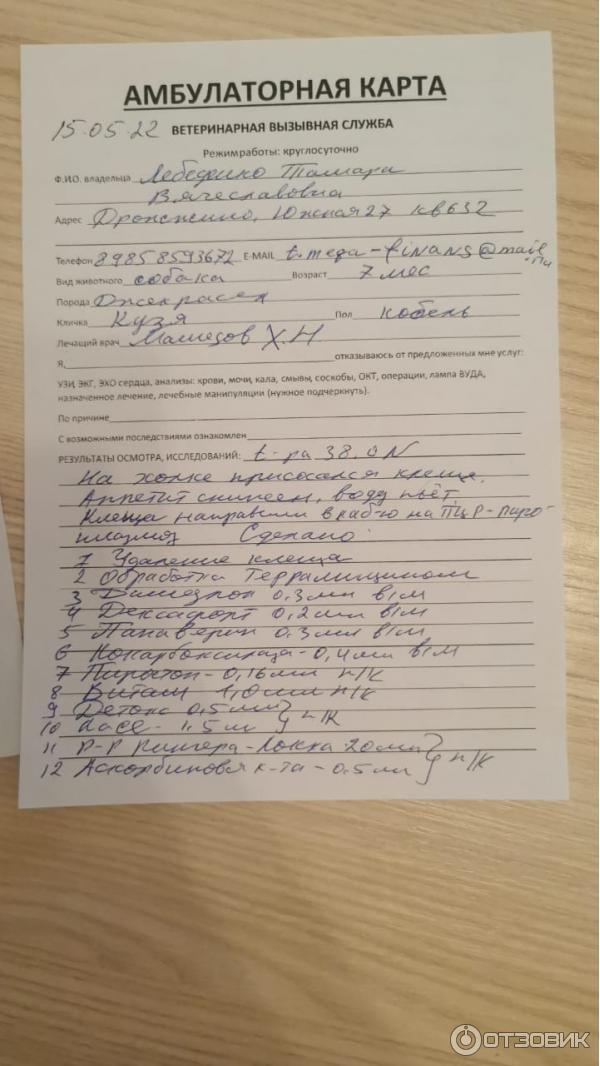 АМБУЛАТОРНАЯ КАРТА
15.05.22 ВЕТЕРИНАРНАЯ ВЫЗЫВНАЯ СЛУЖБА
Режим работы: круглосуточно
Ф.И.О. владельца Тамара
Вячеславовна
Адрес Дрожжино, Южная 27 кв 632
Телефон 89858593672 E-MAIL t.mega-finans@mail.ru
Вид животного собака Возраст 7 мес
Порода Джекрассел
Кличка Кузя Пол кобель
Лечащий врач Х.Н
Я, отказываюсь от предложенных мне услуг:
УЗИ, ЭКГ, ЭХО сердца, анализы: крови, мочи, кала, смывы, соскобы, ОКТ, операции, лампа ВУДА,
назначенное лечение, лечебные манипуляции (нужное подчеркнуть).
По причине
С возможными последствиями ознакомлен
РЕЗУЛЬТАТЫ ОСМОТРА, ИССЛЕДОВАНИЙ: t-ра 38.0 N
На холке присосался клещ.
Аппетит снижен, воду пьёт.
Клеща направили в лаб-ю на ПЦР-пиро-
плазмоз Сделано:
1 Удаление клеща
2 Обработка Террамицином
3 0.3мл в/м
4 Дексафорт 0,2мл в/м
5 Папаверин 0.3мл в/м
6 Кокарбоксилаза - 0,4мл в/м
7 - 0,16мл п/к
8 Витам 1,0мл п/к
9 Детокс 0,5мл
10 - 1.5мл } п/к
11 Р-Р Рингера-Локка 20мл
12 Аскорбиновая к-та - 0.5мл } п/к
ОТЗОВИК